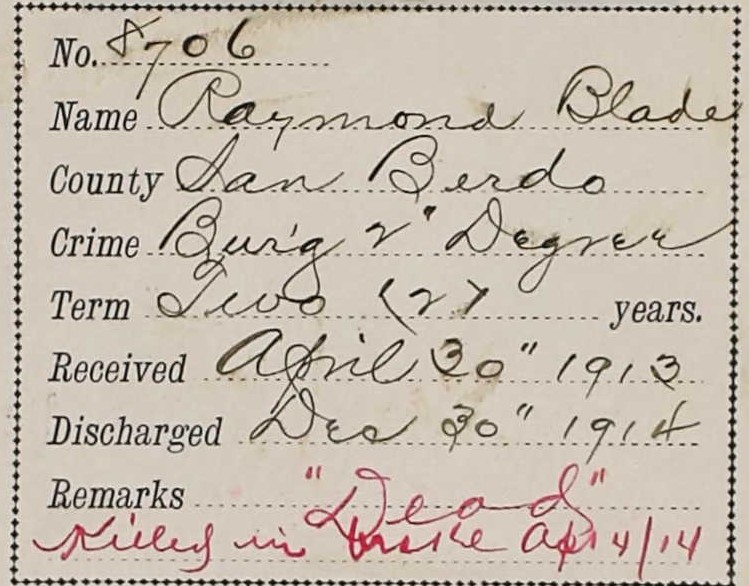 No. 8706
Name Raymond Blade
County San Berdo
Crime Bur'g 2" Degree
Term Two (2) years.
Received April 30" 1913
Discharged Dec 30" 1914
Remarks "Dead"
Killed in Apr 4/14